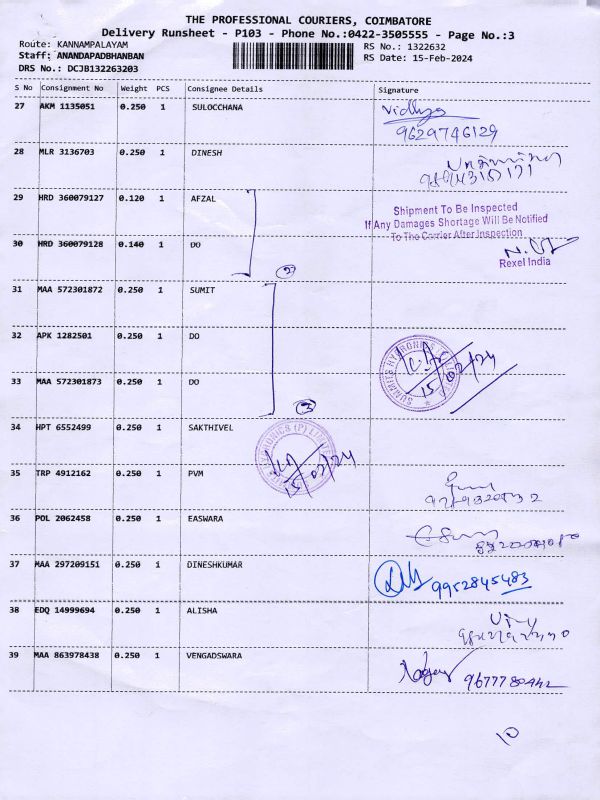 THE PROFESSIONAL COURIERS, COIMBATORE
Delivery Runsheet - P103 - Phone No.:0422-3505555 - Page No.:3
Route: KANNAMPALAYAM
RS No.: 1322632
Staff: ANANDAPADBHANBAN
RS Date: 15-Feb-2024
DRS No.: DCJB132263203
S No Consignment No Weight PCS Consignee Details Signature
27 AKM 1135051 0.250 1 SULOCCHANA Vidhya
9629746129
28 MLR 3136703 0.250 1 DINESH
29 HRD 360079127 0.120 1 AFZAL
Shipment To Be Inspected
If Any Damages Shortage Will Be Notified
To The Carrier After Inspection
30 HRD 360079128 0.140 1 DO
Rexel India
2
31 MAA 572301872 0.250 1 SUMIT
32 APK 1282501 0.250 1 DO
33 MAA 572301873 0.250 1 DO
15/02/24
3
34 HPT 6552499 0.250 1 SAKTHIVEL
15/02/24
35 TRP 4912162 0.250 1 PVM
36 POL 2062458 0.250 1 EASWARA
37 MAA 297209151 0.250 1 DINESHKUMAR
9952845483
38 EDQ 14999694 0.250 1 ALISHA
39 MAA 863978438 0.250 1 VENGADSWARA
9677780442
10